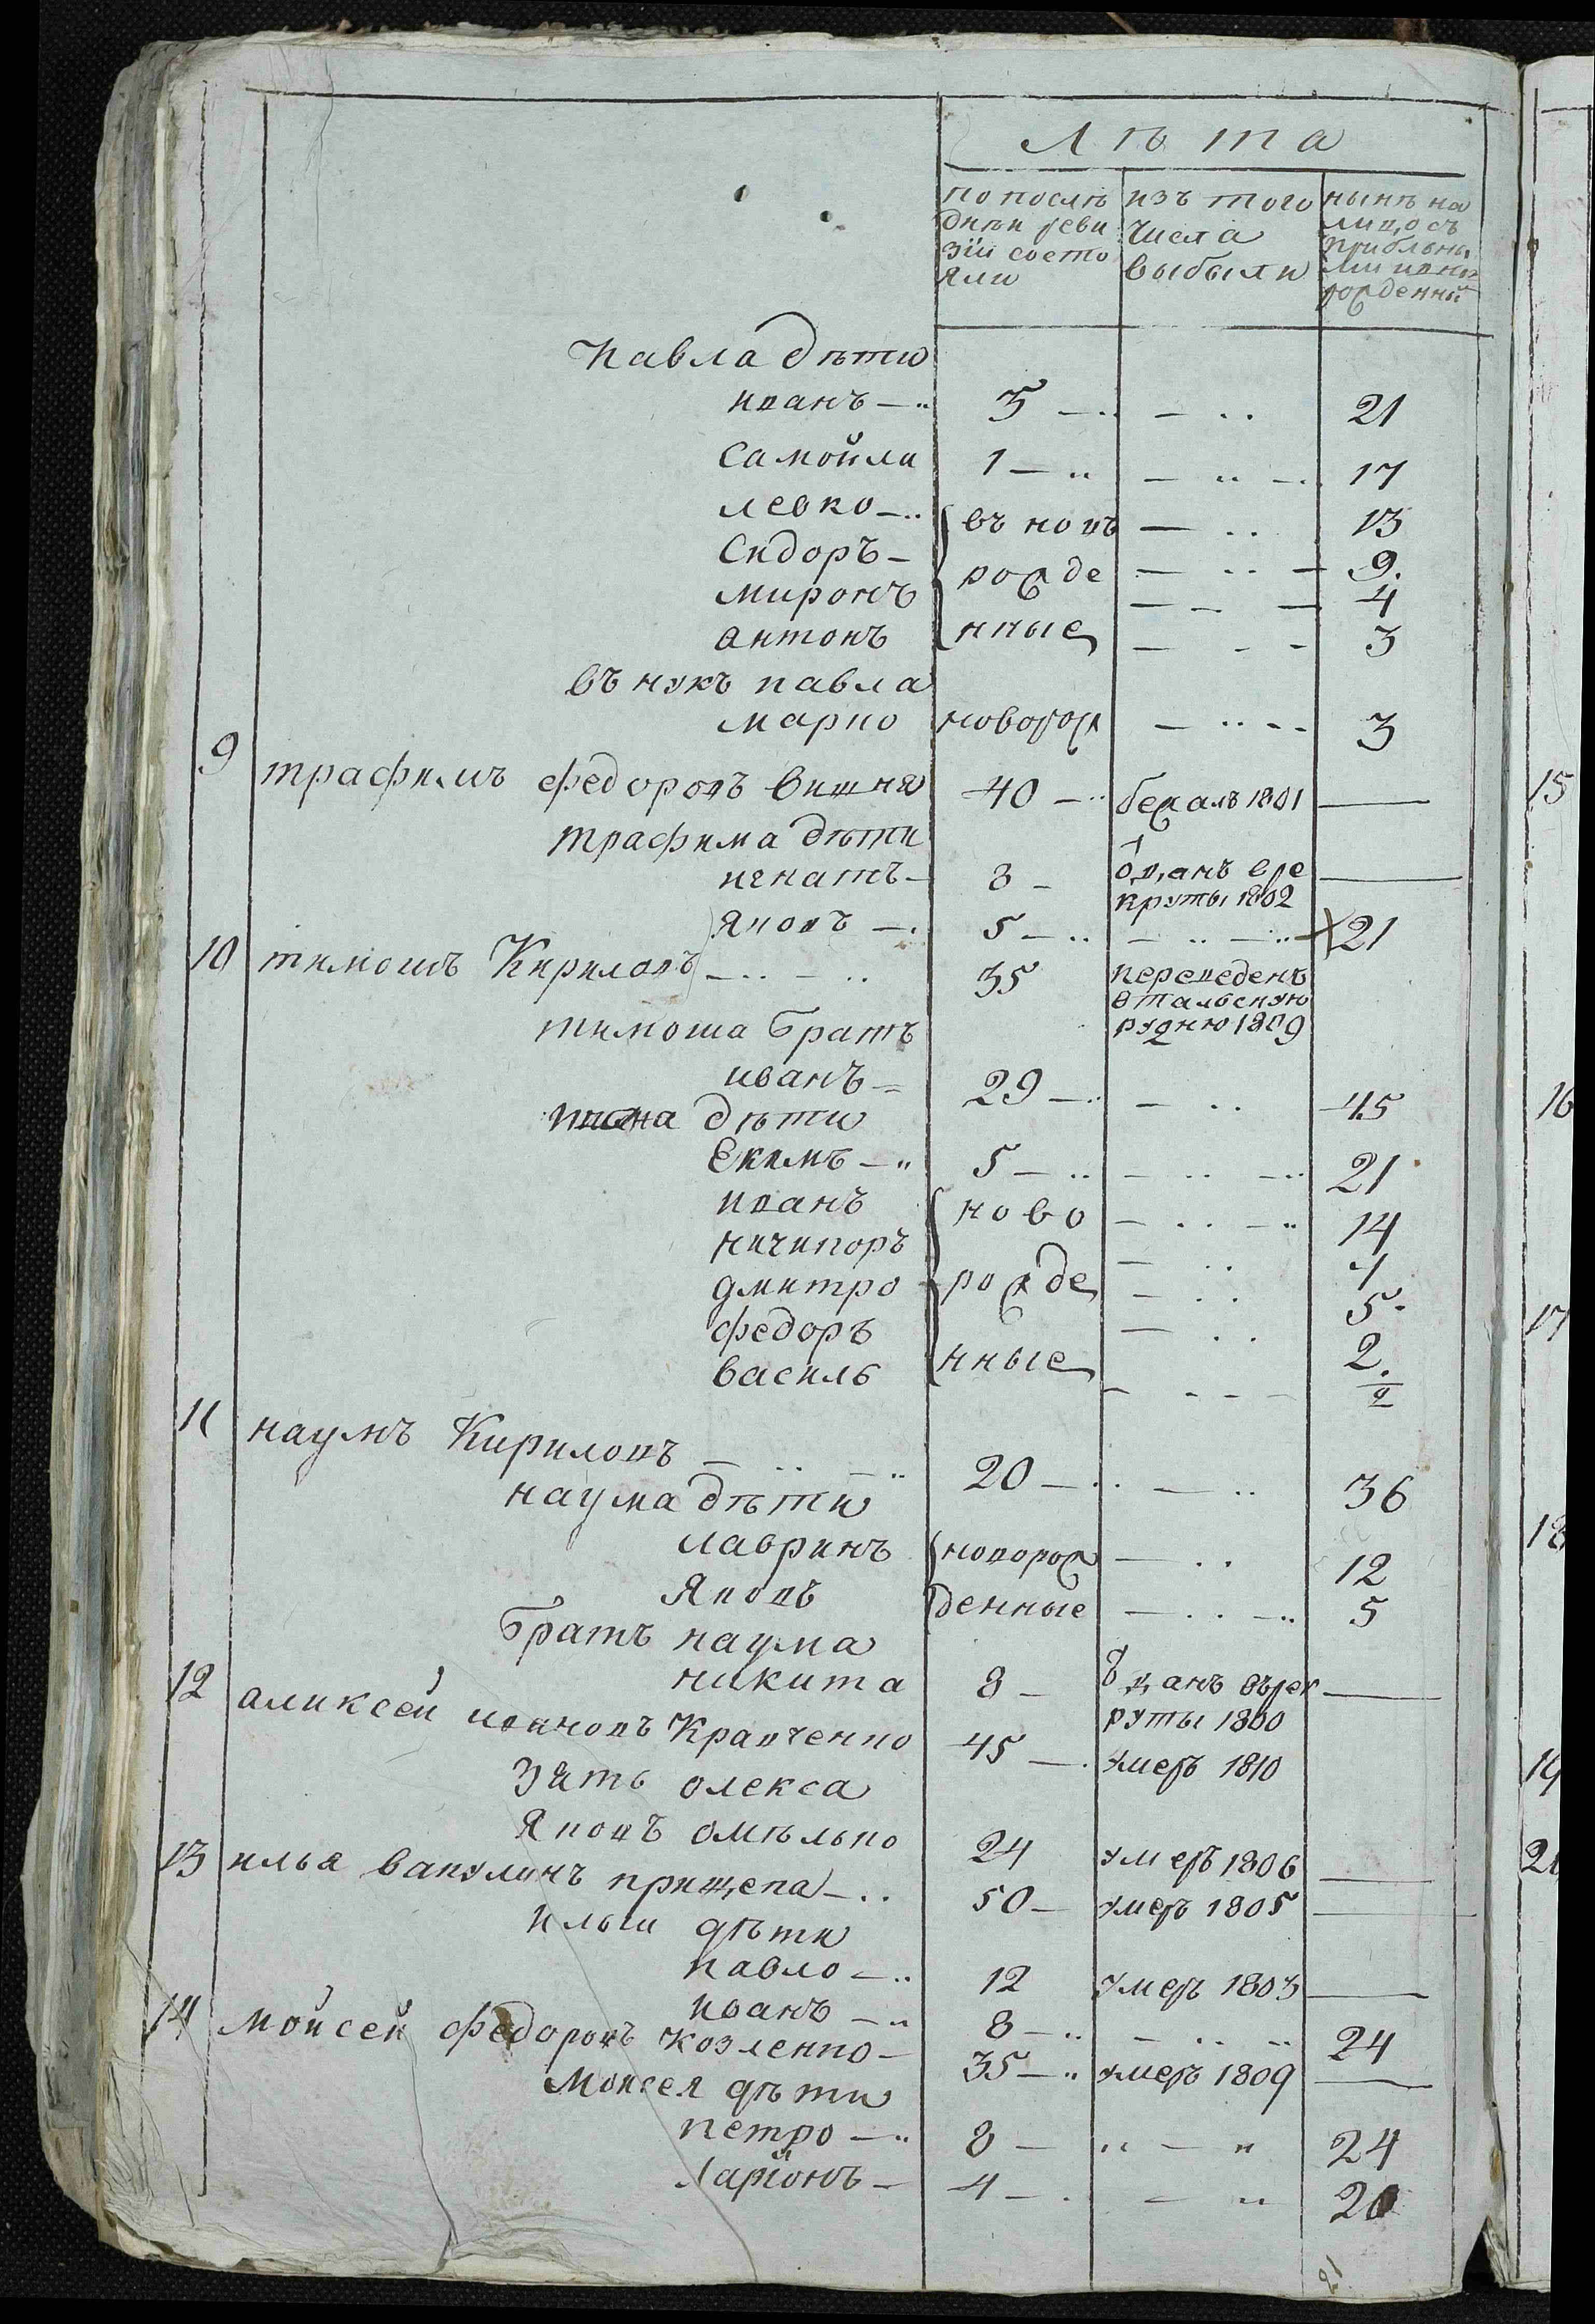 Лѣта
по послѣ
дней реви
зіи состо
яли
изъ того
числа
выбыли
нынѣ на
лицо съ
прибылы
ми и но
рожденны
Павла дѣти
иванъ 5 21
Самойли 1 17
левко въ новъ 13
Сидоръ рожде 9.
миронъ 4
антонъ нные 3
въ нукъ павла
марко новорож 3
9 трафимъ федоровъ вишня 40 бежалъ 1801
трафима дѣти
игнатъ 8 отданъ вре
круты 1802
яковъ 5 21
10 тимошъ Кириловъ 35 переведенъ
втальскую
рудню 1809
тимоша братъ
иванъ 29 45
ивана дѣти
Екимъ 5 21
иванъ ново 14
ничипоръ
дмитро рожде 5.
федоръ 2.
василь нные
11 наумъ Кириловъ 20 36
наума дѣти
лавринъ новорож 12
Яковъ денные 5
братъ наума
никита 8 отданъ върек
руты 1800
12 аликсей Кравченко 45 умеръ 1810
зять олекса
Яковъ омѣлько 24 умеръ 1806
13 илья вакулинъ прищепа 50 умеръ 1805
ильи дѣти
павло 12 умеръ 1803
иванъ 8 24
14 мойсей федоровъ козленко 35 умеръ 1809
Мойсея дѣти
петро 8 24
ларионъ 4 20
21
15
16
17
18
19